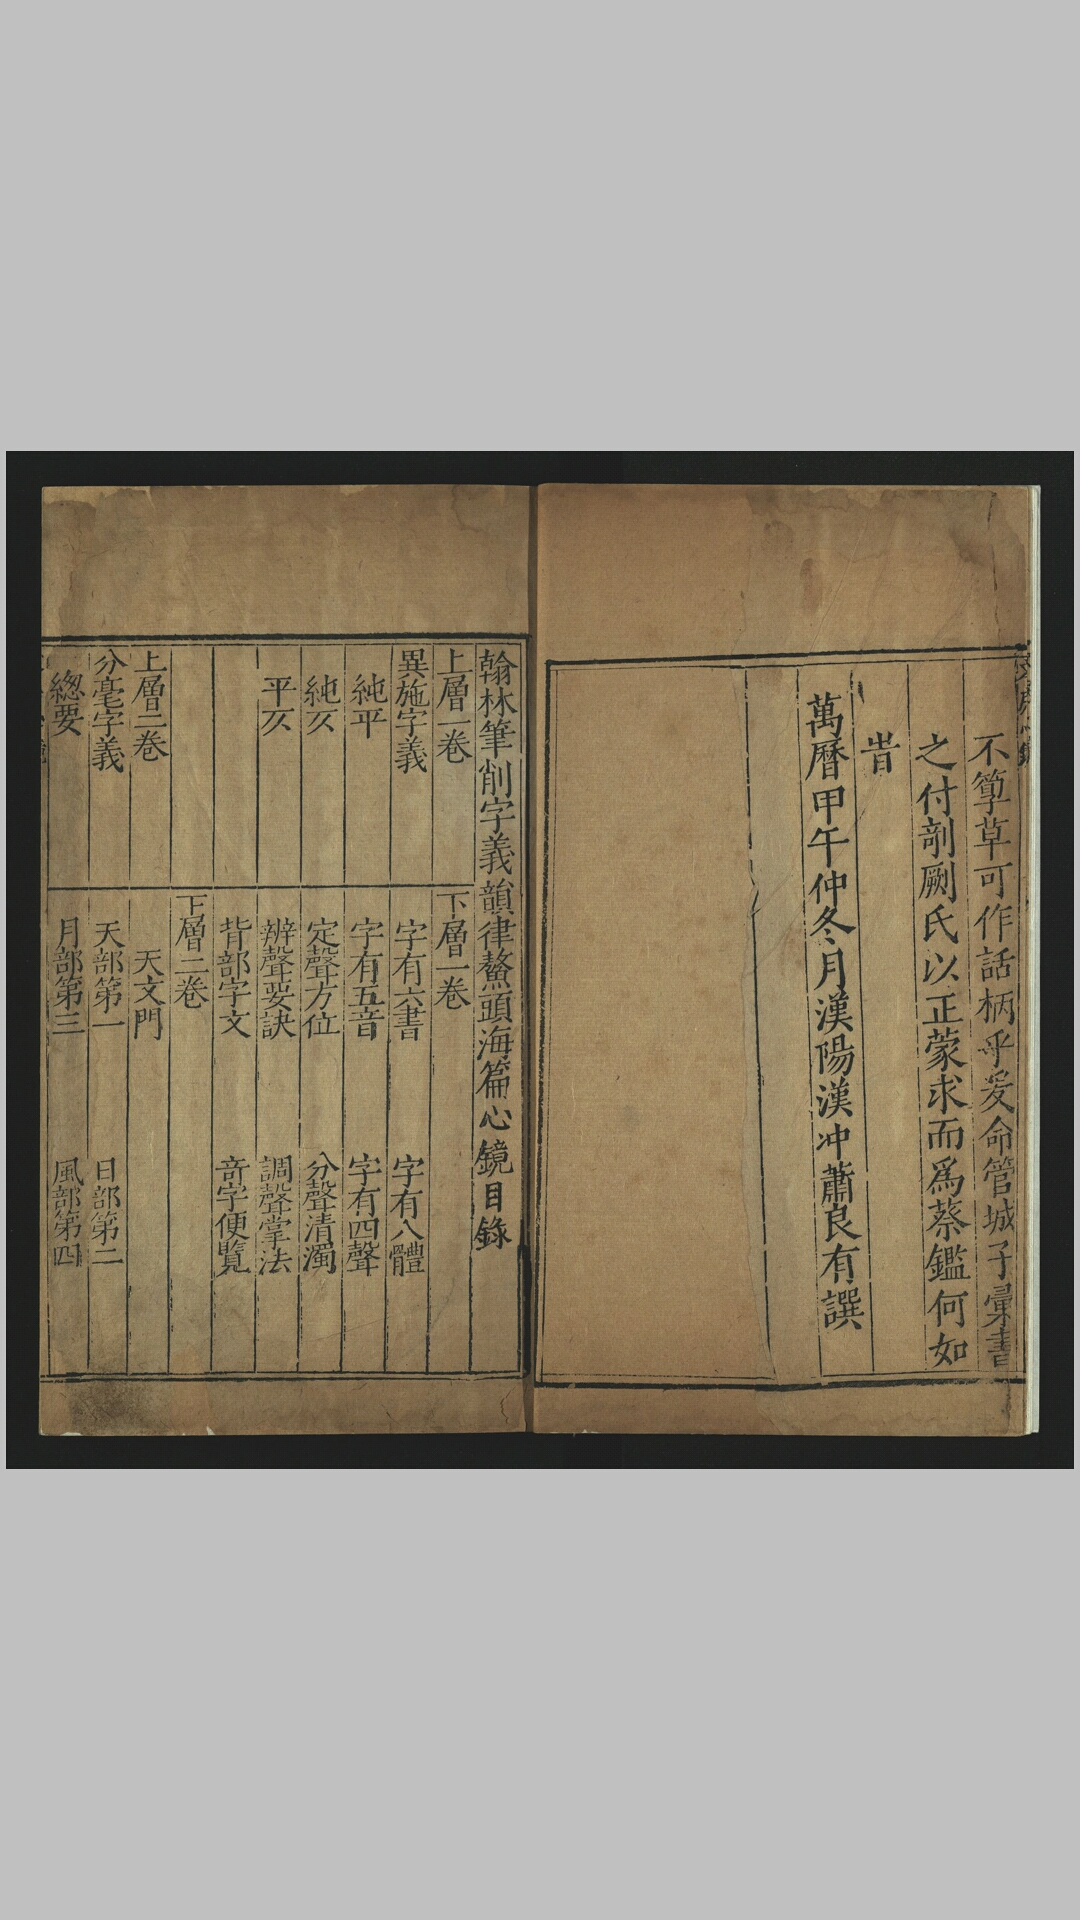 不䈄草可作話柄乎爰命管城子彙書
之付剞劂氏以正蒙求而爲蔡鑑何如
旹
萬曆甲午仲冬月漢陽漢冲蕭良有譔
翰林筆削字義韻律鰲頭海篇心鏡目錄
上層一卷
異施字義
純平
純仄
平仄
上層二卷
分毫字義
總要
下層一卷
字有六書 字有八體
字有五音 字有四聲
定聲方位 分聲清濁
辨聲要訣 調聲掌法
背部字文 竒字便覧
下層二卷
天文門
天部第一 日部第二
月部第三 風部第四